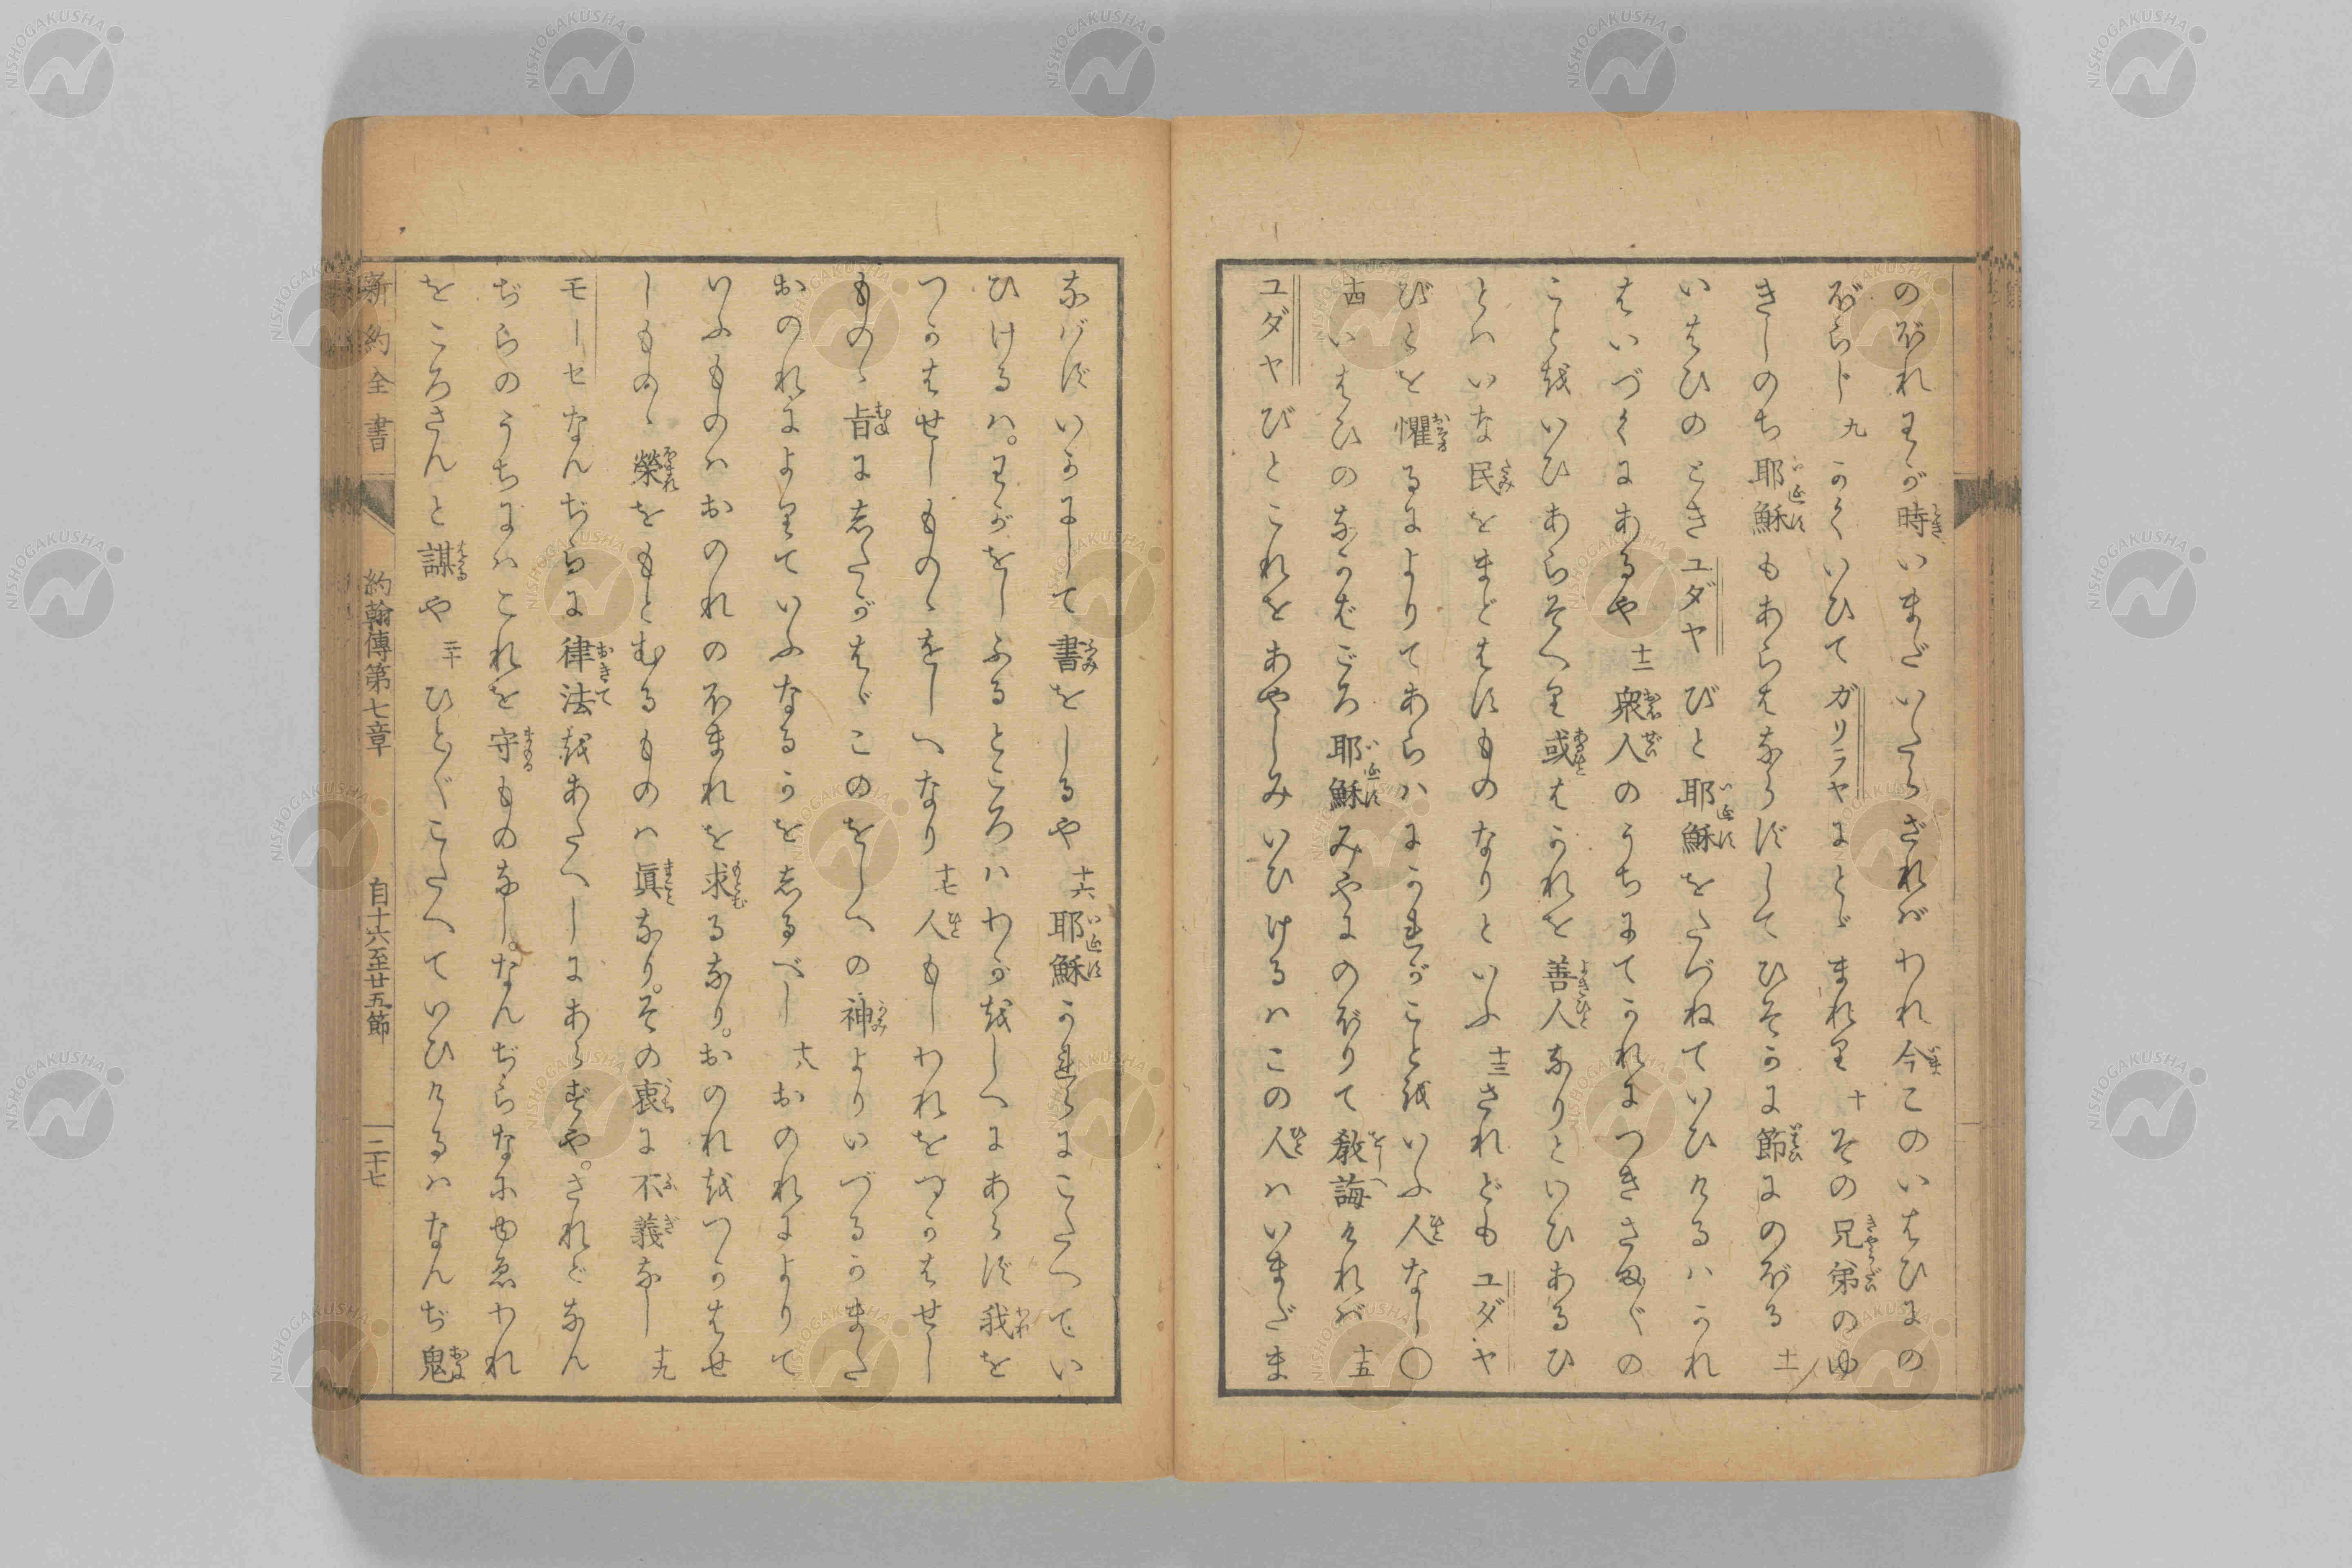 のぼれわが時いまだいたらざればわれ今このいはひにの
ぼらじ九かくいひてガリラヤにとゞまれり十その兄弟のゆ
きしのち耶穌もあらはならずしてひそかに節にのぼる十一
いはひのときユダヤびと耶穌をたづねていひけるハかれ
はいづくにあるや十二衆人のうちにてかれにつきさま〴〵の
こと越いひあらそへり或はかれを善人なりといひあるひ
とハいな民をまどはすものなりといふ十三されどもユダヤ
びとを懼るによりてあらハにかれがこと越いふ人なし〇
十四いはひのなかばごろ耶穌みやにのぼりて教誨ければ十五
ユダヤびとこれをあやしみいひけるハこの人ハいまだま
なばずいかにして書をしるや十六耶穌かれらにこたへてい
ひけるハ。わがをしふるところハわが越しへにあらず我を
つかはせしものゝをしへなり十七人もしわれをつかはせし
ものゝ旨にしたがはゞこのをしへの神よりいづるかまた
おのれによりていふなるかをしるべし十八おのれによりて
いふものハおのれのほまれを求るなり。おのれ越つかはせ
しものゝ榮をもとむるものハ眞なり。その衷に不義なし十九
モーセなんぢらに律法越あたへしにあらずや。されどなん
ぢらのうちにハこれを守ものなし。なんぢらなにゆゑわれ
をころさんと謀や二十ひと〴〵こたへていひけるハなんぢ鬼
新約全書 約翰傳第七章 自十六至廿五節 二十七